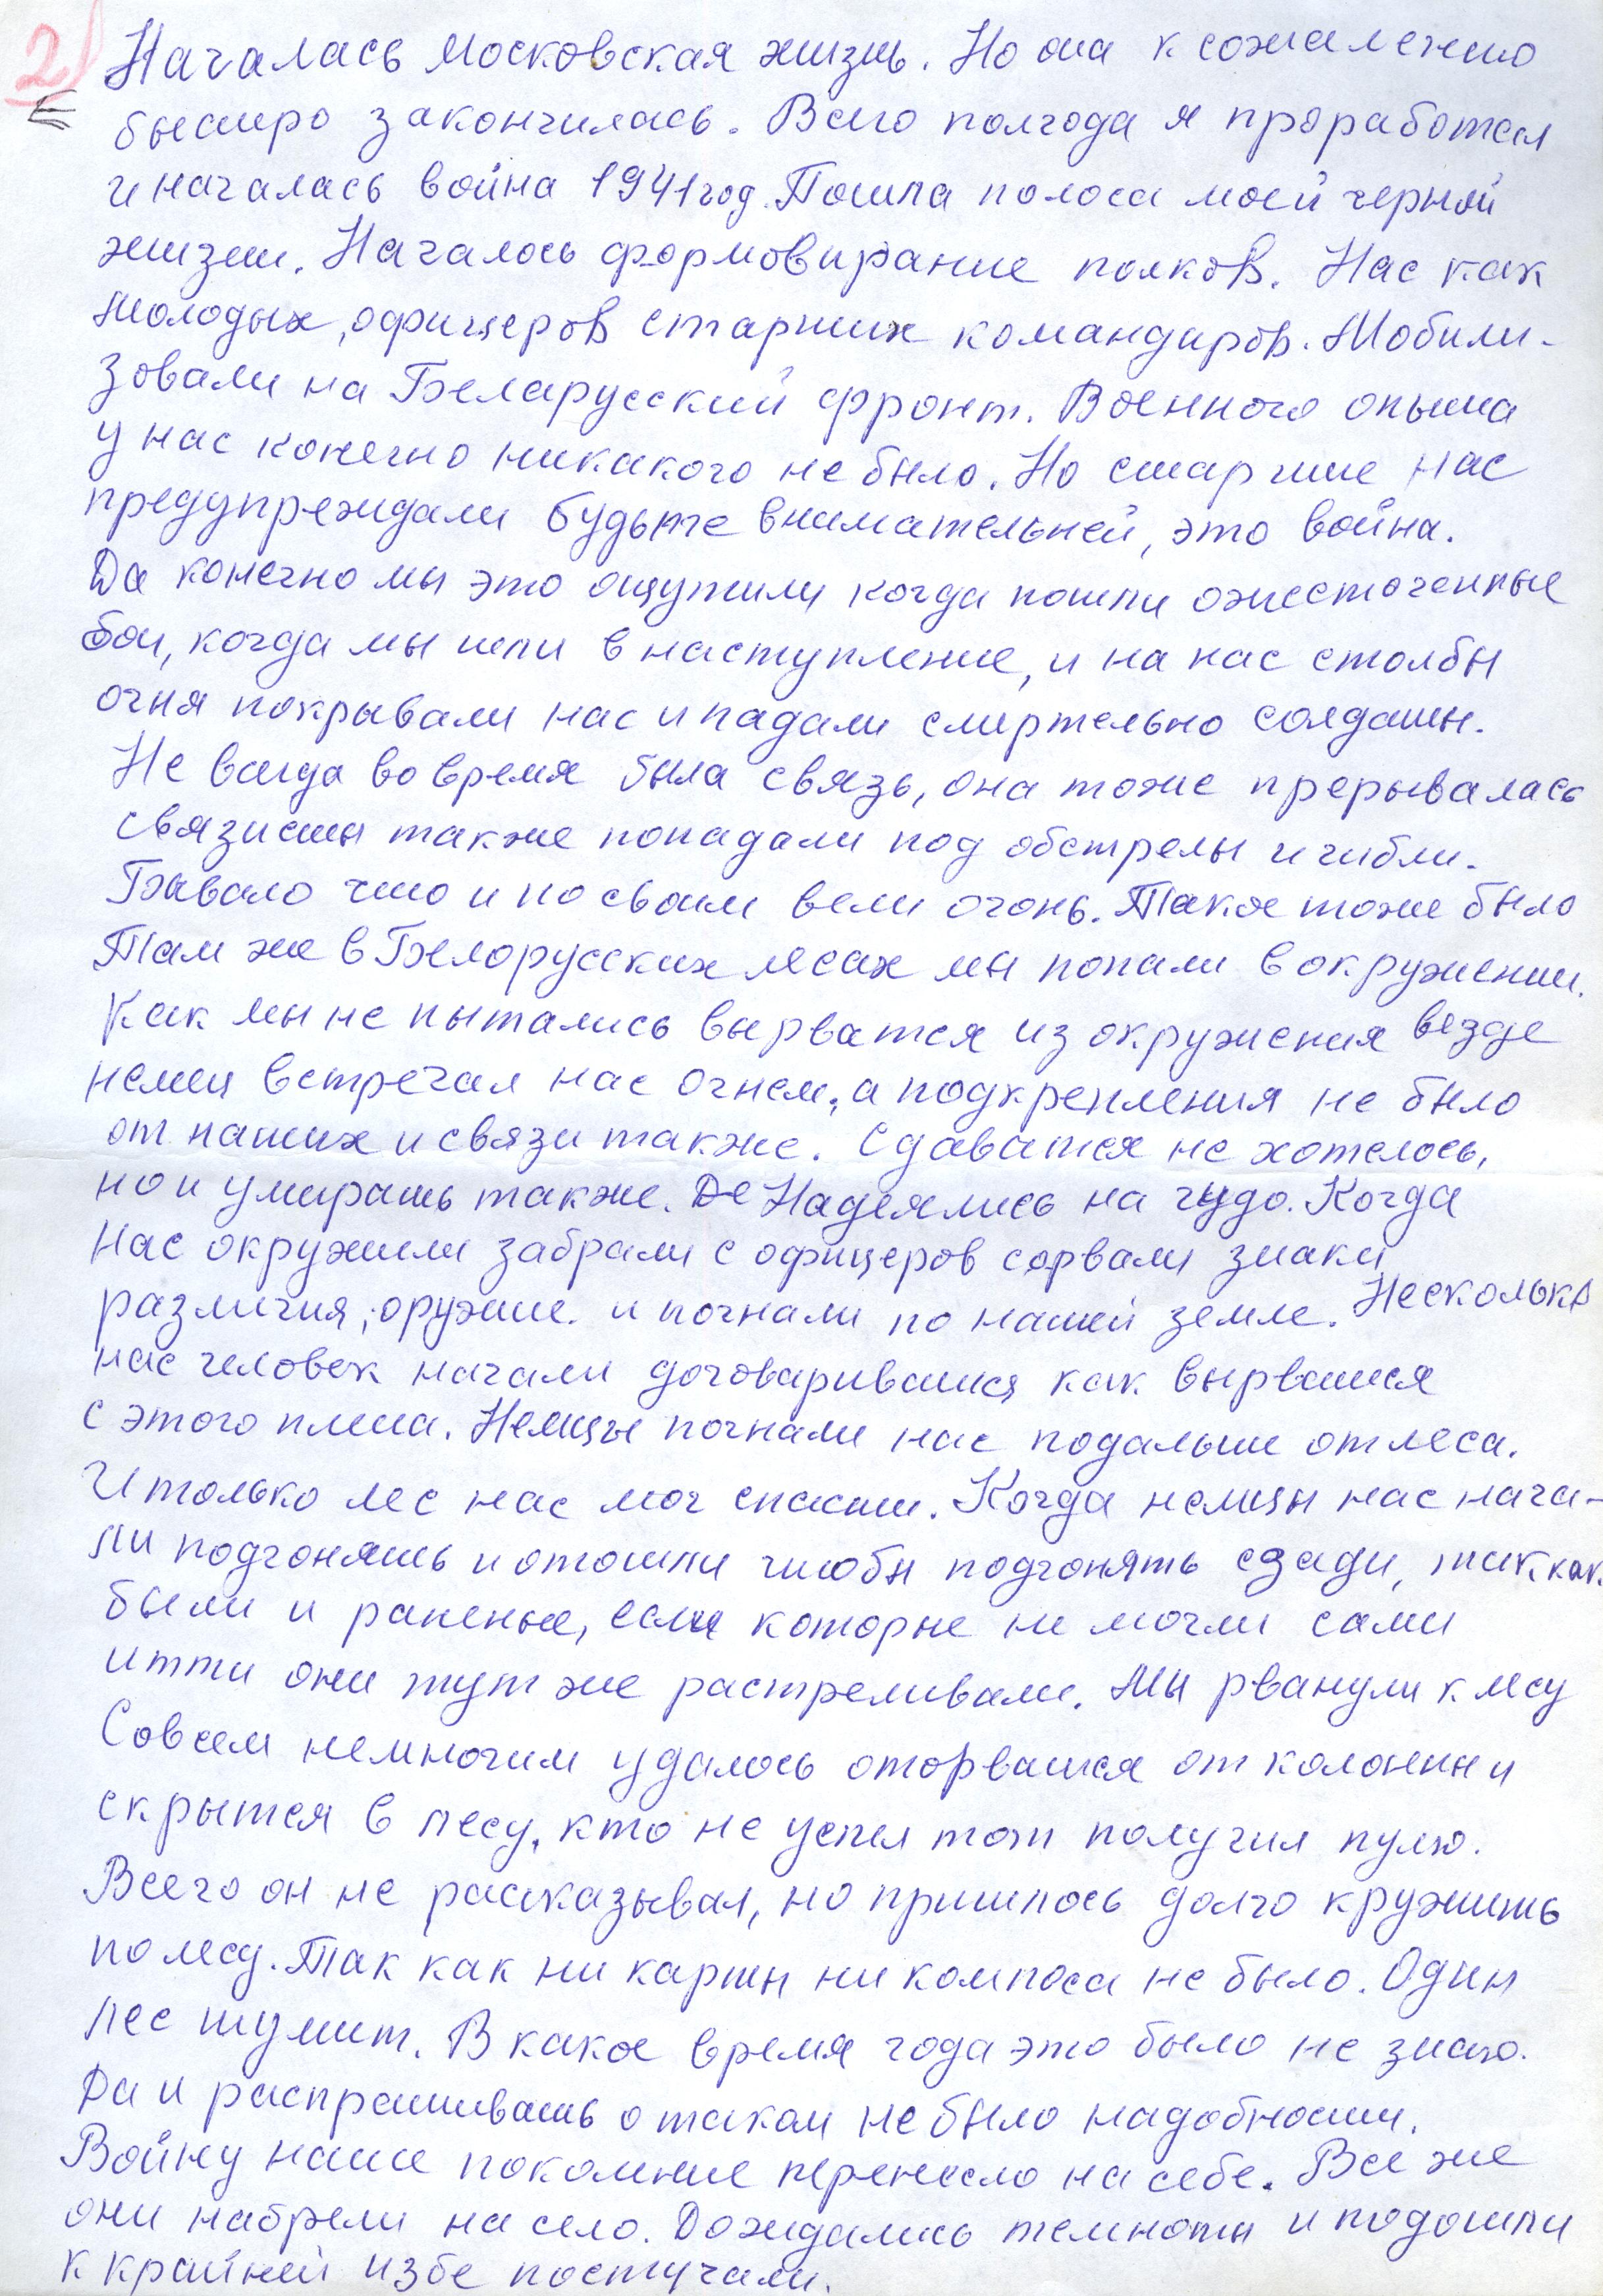 2)
Началась московская жизнь. Но она к сожалению
быстро закончилась. Всего полгода я проработал
и началась война 1941 год. Пошла полоса моей черной
жизни. Началось формовирание полков. Нас как
молодых, офицеров старших командиров. Мобили-
зовали на Беларусский фронт. Военного опыта
у нас конечно никакого не было. Но старшие нас
предупреждали будьте внимательней, это война.
Да конечно мы это ощутили когда пошли ожесточенные
бои, когда мы шли в наступление, и на нас столбы
огня покрывали нас и падали смертельно солдаты.
Не всегда во время была связь, она тоже прерывалась
связисты также попадали под обстрелы и гибли.
Бывало что и по своим вели огонь. Такое тоже было
Там же в Белорусских лесах мы попали в окружении.
Как мы не пытались вырватся из окружения везде
немец встречал нас огнем, а подкрепления не было
от наших и связи также. Сдаватся не хотелось,
но и умирать также. Де Надеялись на чудо. Когда
нас окружили забрали с офицеров сорвали знаки
различия, оружие. и погнали по нашей земле. Несколько
нас человек начали договариватся как вырватся
с этого плена. Немцы погнали нас подальше от леса.
И только лес нас мог спасти. Когда немцы нас нача-
ли подгонять и отошли чтобы подгонять сзади, так как.
были и раненые, если которые не могли сами
итти они тут же растреливали. Мы рванули к лесу
Совсем немногим удалось оторватся от колонны и
скрытся в лесу, кто не успел тот получил пулю.
Всего он не рассказывал, но пришлось долго кружить
по лесу. Так как ни карты ни компоса не было. Один
лес шумит. В какое время года это было не знаю.
Да и распрашивать о таком не было надобности.
Войну наше поколение перенесло на себе. Все же
они набрели на село. Дождались темноты и подошли
к крайней избе постучали.